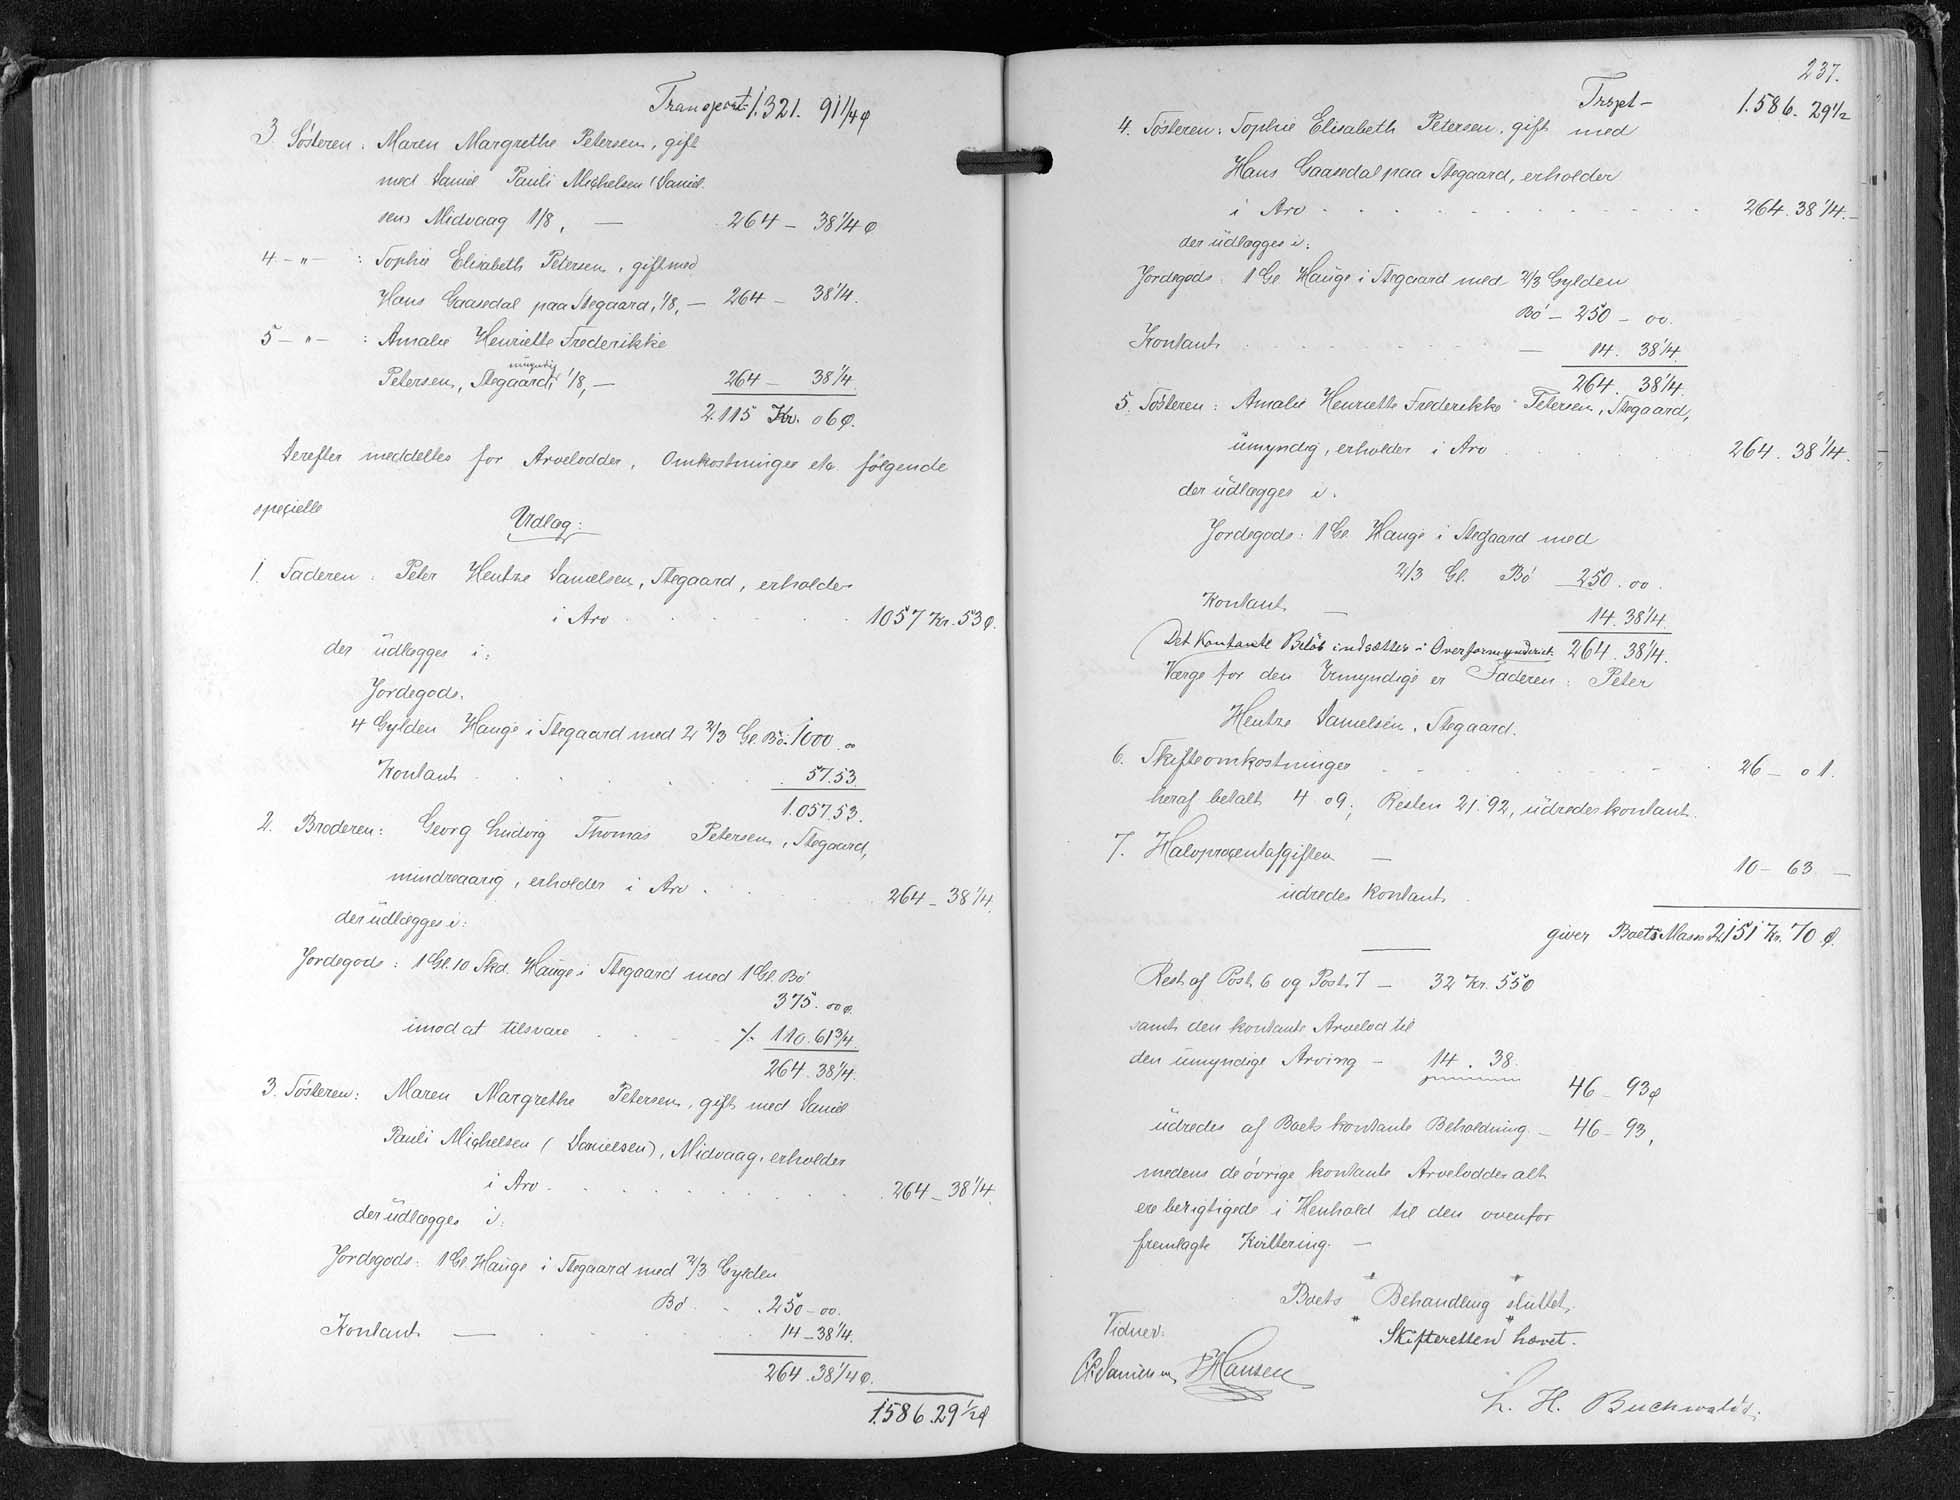 Transport 1.321. 91 1/4 ø
3 Søsteren: Maren Margrethe Petersen, gift
med Daniel Pauli Michelsen (Daniel-
sen) Midvaag 1/8, — 264 - 38 1/4 ø
4 - " - : Sophie Elisabeth Petersen, gift med
Hans Gaasedal paa Stegaard, 1/8, - 264 - 38 1/4.
5 - " - : Amalie Henriette Frederikke
umyndig
Petersen, Stegaard, 1/8, - 264 - 38 1/4.
2115 Kr. 06 ø.
Derefter meddeltes for Arvelodder, Omkostninger etc. følgende
specielle
Udlæg:
1. Faderen: Peter Hentze Danielsen, Stegaard, erholder
i Arv . . . . . . 1057 Kr. 53 ø.
der udlægges i:
Jordegods.
4 Gylden Hauge i Stegaard med 2 2/3 Gl. Bø. 1000 . 00
Kontant . . . . . . 57.53.
1.057.53.
2. Broderen: Georg Ludvig Thomas Petersen, Stegaard,
mindreaarig, erholder i Arv . . . . 264 - 38 1/4.
der udlægges i:
Jordegods: 1 Gl. 10 Skd. Hauge i Stegaard med 1 Gl. Bø
375. 00 ø.
imod at tilsvare . . . . ÷ 110. 61 3/4.
264. 38 1/4.
3. Søsteren: Maren Margrethe Petersen, gift med Daniel
Pauli Michelsen (Danielsen), Midvaag, erholder
i Arv . . . . . . . . 264 - 38 1/4.
der udlægges i:
Jordegods: 1 Gl. Hauge i Stegaard med 2/3 Gylden
Bø . . 250 - 00.
Kontant — . . . . . 14 - 38 1/4.
264. 38 1/4 ø.
1.586. 29 1/2 ø
237.
Trspt - 1.586. 29 1/2
4. Søsteren: Sophie Elisabeth Petersen, gift med
Hans Gaasedal paa Stegaard, erholder
i Arv . . . . . . . . . . 264. 38 1/4. -
der udlægges i:
Jordegods: 1 Gl. Hauge i Stegaard med 2/3 Gylden
Bø - 250 - 00.
Kontant . . . . . . . . — 14. 38 1/4.
264. 38 1/4.
5. Søsteren: Amalie Henriette Frederikke Petersen, Stegaard,
umyndig, erholder i Arv . . . . . 264. 38 1/4.
der udlægges i:
Jordegods: 1 Gl. Hauge i Stegaard med
2/3 Gl. Bø - 250. 00.
Kontant — 14. 38 1/4.
(Det kontante Beløb indsættes i Overformynderiet. 264. 38 1/4.
Værge for den Umyndige er Faderen: Peter
Hentze Danielsen, Stegaard.
6. Skifteomkostninger . . . . . . . . 26 - 01.
heraf betalt 4.09; Resten 21.92, udredes kontant.
7. Halvprocentafgiften — 10 - 63. —
udredes kontant.
giver Boets Masse 2151 Kr. 70 ø.
Rest af Post 6 og Post 7 - 32 Kr. 55 ø
samt den kontante Arvelod til
den umyndige Arving - 14. 38.
46 - 93 ø
udredes af Boets kontante Beholdning - 46 - 93,
medens de øvrige kontante Arvelodder alt
ere berigtigede i Henhold til den ovenfor
fremlagte Kvittering. —
Boets Behandling sluttet.
Skifteretten hævet.
Vidner:
Danielsen, Hansen
L. H. Buchwaldt.